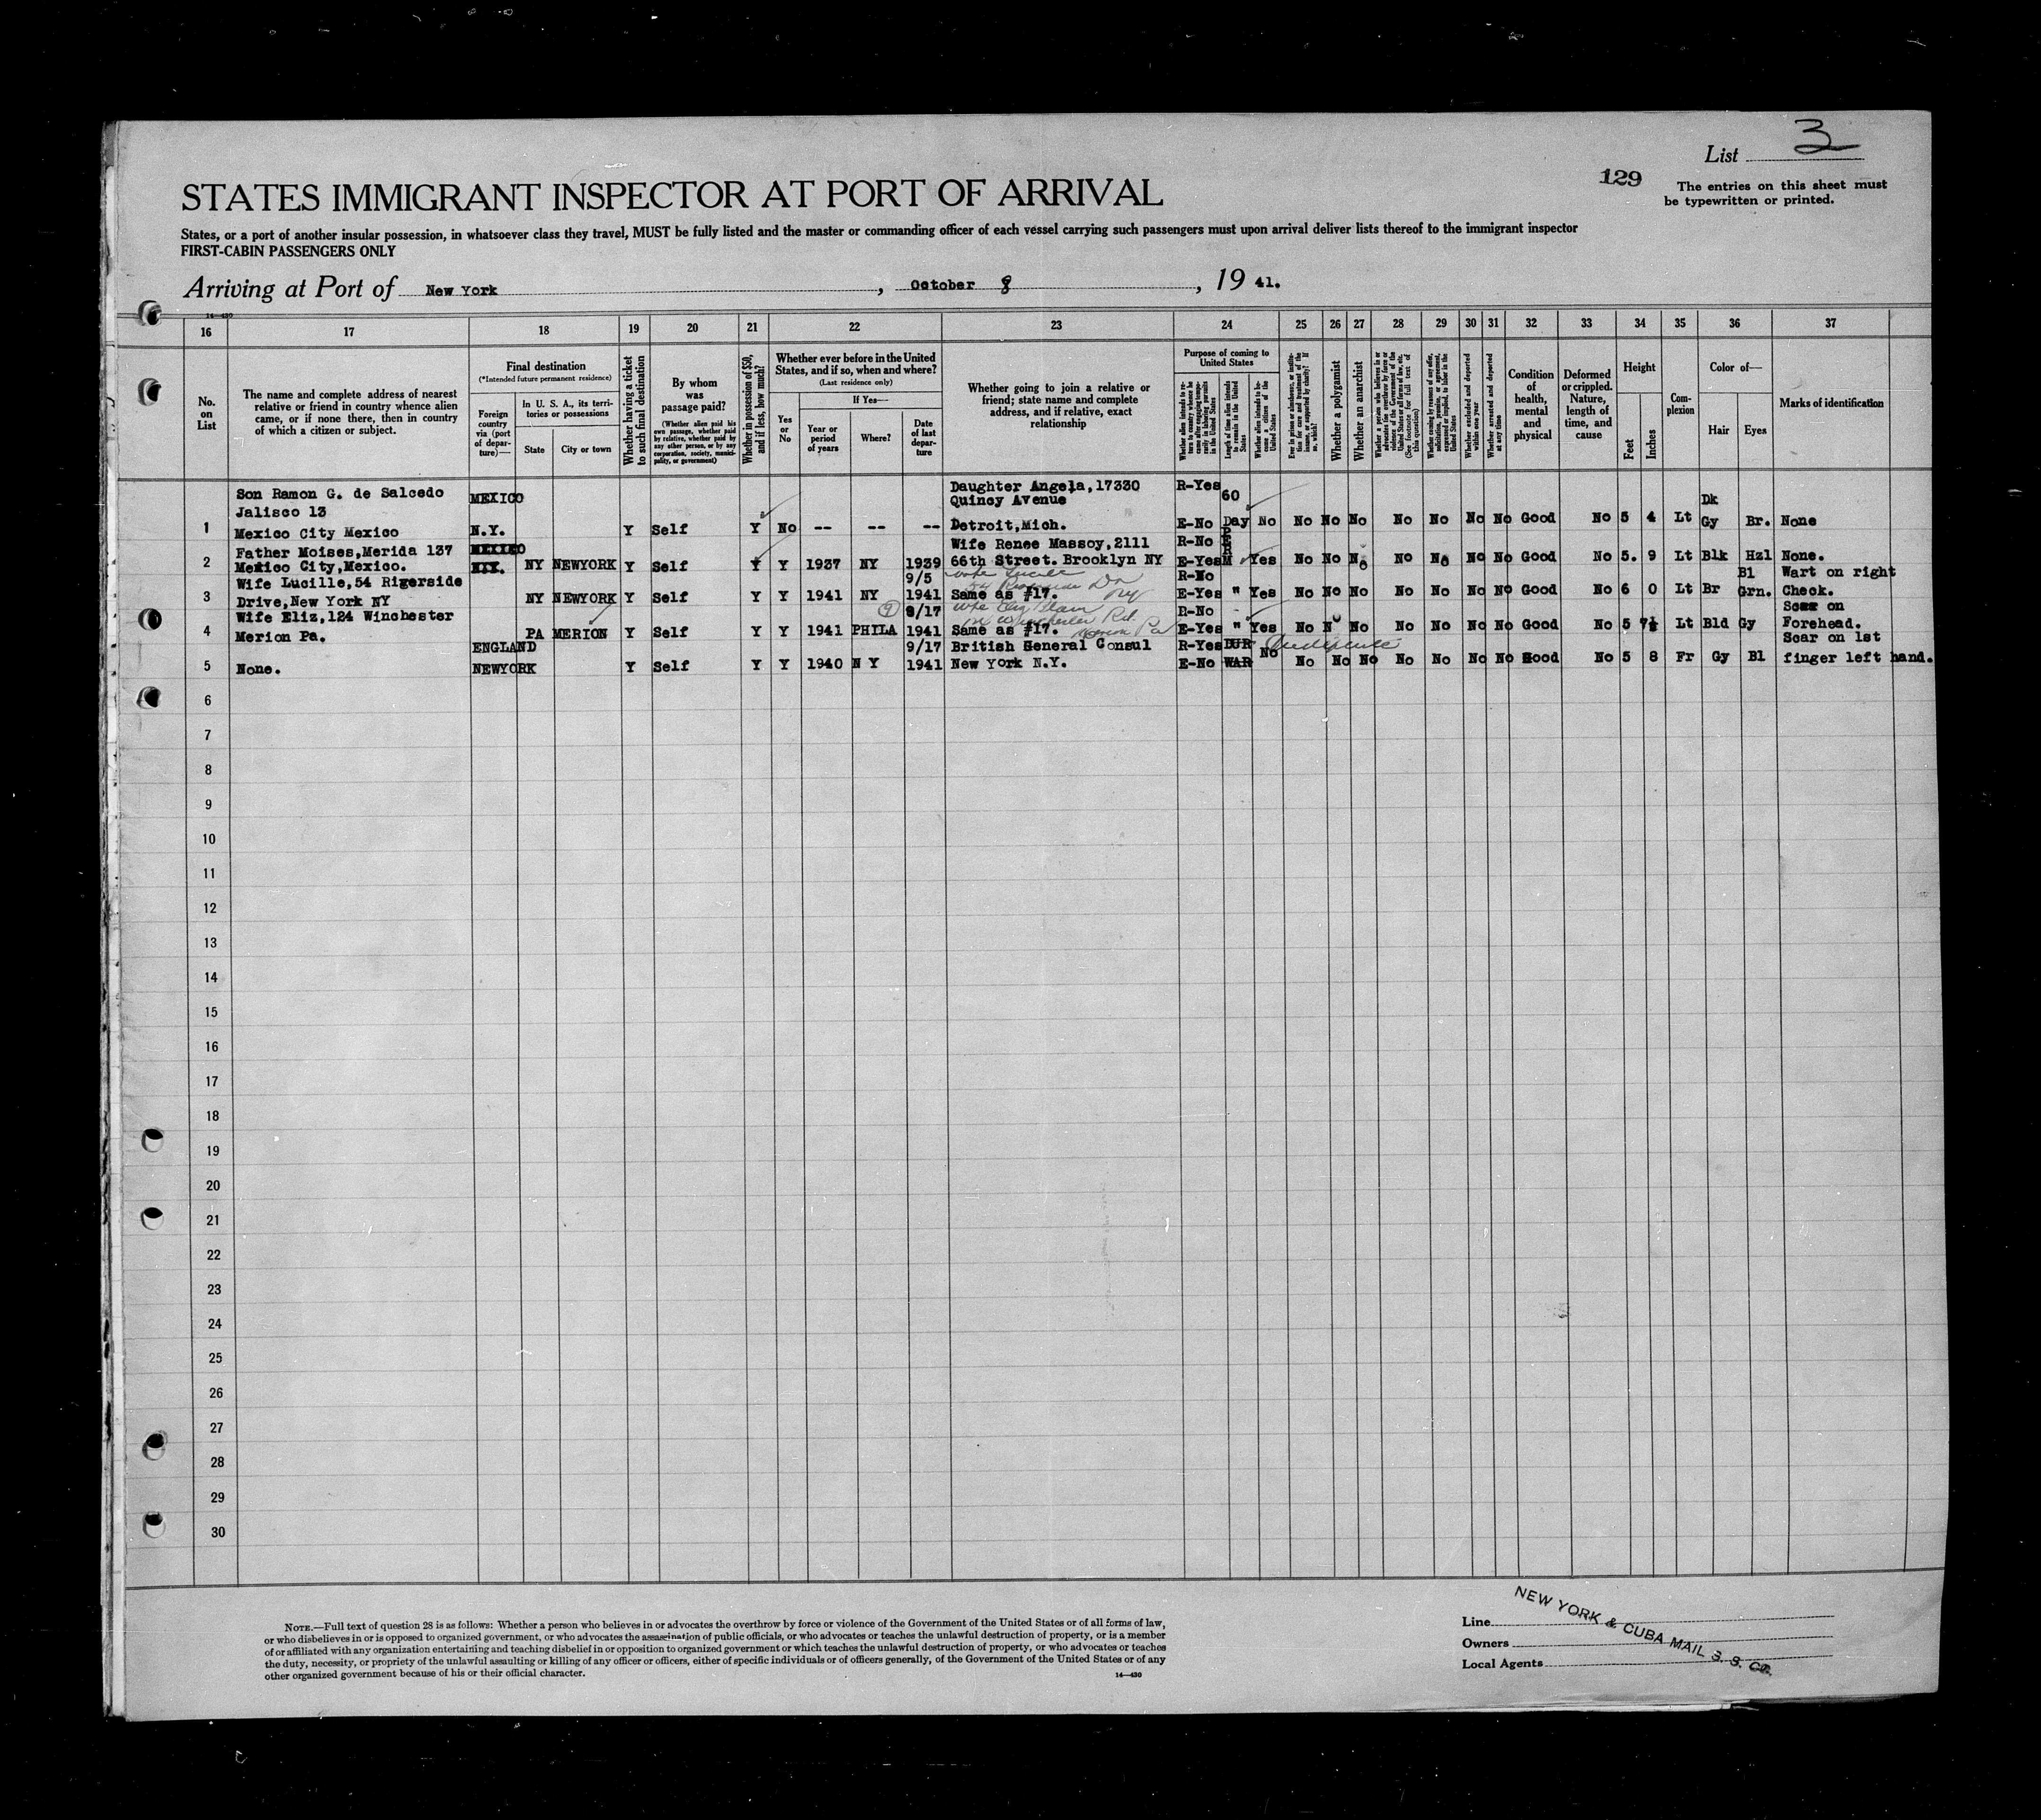 List 3
129
The entries on this sheet must
be typewritten or printed.
STATES IMMIGRANT INSPECTOR AT PORT OF ARRIVAL
States, or a port of another insular possession, in whatsoever class they travel, MUST be fully listed and the master or commanding officer of each vessel carrying such passengers must upon arrival deliver lists thereof to the immigrant inspector
FIRST-CABIN PASSENGERS ONLY
Arriving at Port of New York, October 8, 19 41.
14—430
16 17 18 19 20 21 22 23 24 25 26 27 28 29 30 31 32 33 34 35 36 37
No.
on
List
The name and complete address of nearest
relative or friend in country whence alien
came, or if none there, then in country
of which a citizen or subject.
Final destination
(*Intended future permanent residence)
Foreign
country
via (port
of depar-
ture)—
In U. S. A., its terri-
tories or possessions
State
City or town
Whether having a ticket
to such final destination
By whom
was
passage paid?
(Whether alien paid his
own passage, whether paid
by relative, whether paid by
any other person, or by any
corporation, society, munici-
pality, or government)
Whether in possession of $50,
and if less, how much?
Whether ever before in the United
States, and if so, when and where?
(Last residence only)
Yes
or
No
If Yes—
Year or
period
of years
Where?
Date
of last
depar-
ture
Whether going to join a relative or
friend; state name and complete
address, and if relative, exact
relationship
Purpose of coming to
United States
Length of time alien intends
to remain in the United
States
Whether alien intends to be-
come a citizen of the
United States
Whether a polygamist
Whether an anarchist
Whether excluded and deported
within one year
Whether arrested and deported
at any time
Condition
of
health,
mental
and
physical
Deformed
or crippled.
Nature,
length of
time, and
cause
Height
Feet
Inches
Com-
plexion
Color of—
Hair
Eyes
Marks of identification
Son Ramon G. de Salcedo MEXICO Daughter Angela,17330 R-Yes
Jalisco 13 Quincy Avenue 60 Dk
1 Mexico City Mexico N.Y. Y Self Y No -- -- -- Detroit,Mich. E-No Day No No No No No No No No Good No 5 4 Lt Gy Br. None
Father Moises,Merida 137 MEXICO Wife Renee Massoy,2111 R-No
2 Mexico City,Mexico. NY NEWYORK Y Self Y Y 1937 NY 1939 66th Street. Brooklyn NY E-Yes Yes No No No No No No No Good No 5. 9 Lt Blk Hzl None.
Wife Lucille,54 Rigerside 9/5 R-No Bl Wart on right
3 Drive,New York NY NY NEWYORK Y Self Y Y 1941 NY 1941 Same as #17. E-Yes " Yes No No No No No No No Good No 6 0 Lt Br Grn. Check.
Wife Eliz,124 Winchester 9/17 R-No Scar on
4 Merion Pa. PA MERION Y Self Y Y 1941 PHILA 1941 Same as #17. E-Yes " Yes No No No No No No No Good No 5 7½ Lt Bld Gy Forehead.
ENGLAND 9/17 British General Consul R-Yes DUR Scar on 1st
5 None. NEWYORK Y Self Y Y 1940 N Y 1941 New York N.Y. E-No WAR No No No No No No No No Good No 5 8 Fr Gy Bl finger left hand.
6
7
8
9
10
11
12
13
14
15
16
17
18
19
20
21
22
23
24
25
26
27
28
29
30
NOTE.—Full text of question 28 is as follows: Whether a person who believes in or advocates the overthrow by force or violence of the Government of the United States or of all forms of law,
or who disbelieves in or is opposed to organized government, or who advocates the assassination of public officials, or who advocates or teaches the unlawful destruction of property, or is a member
of or affiliated with any organization entertaining and teaching disbelief in or opposition to organized government or which teaches the unlawful destruction of property, or who advocates or teaches
the duty, necessity, or propriety of the unlawful assaulting or killing of any officer or officers, either of specific individuals or of officers generally, of the Government of the United States or of any
other organized government because of his or their official character.
14—430
Line
Owners
Local Agents
NEW YORK & CUBA MAIL S. S. CO.